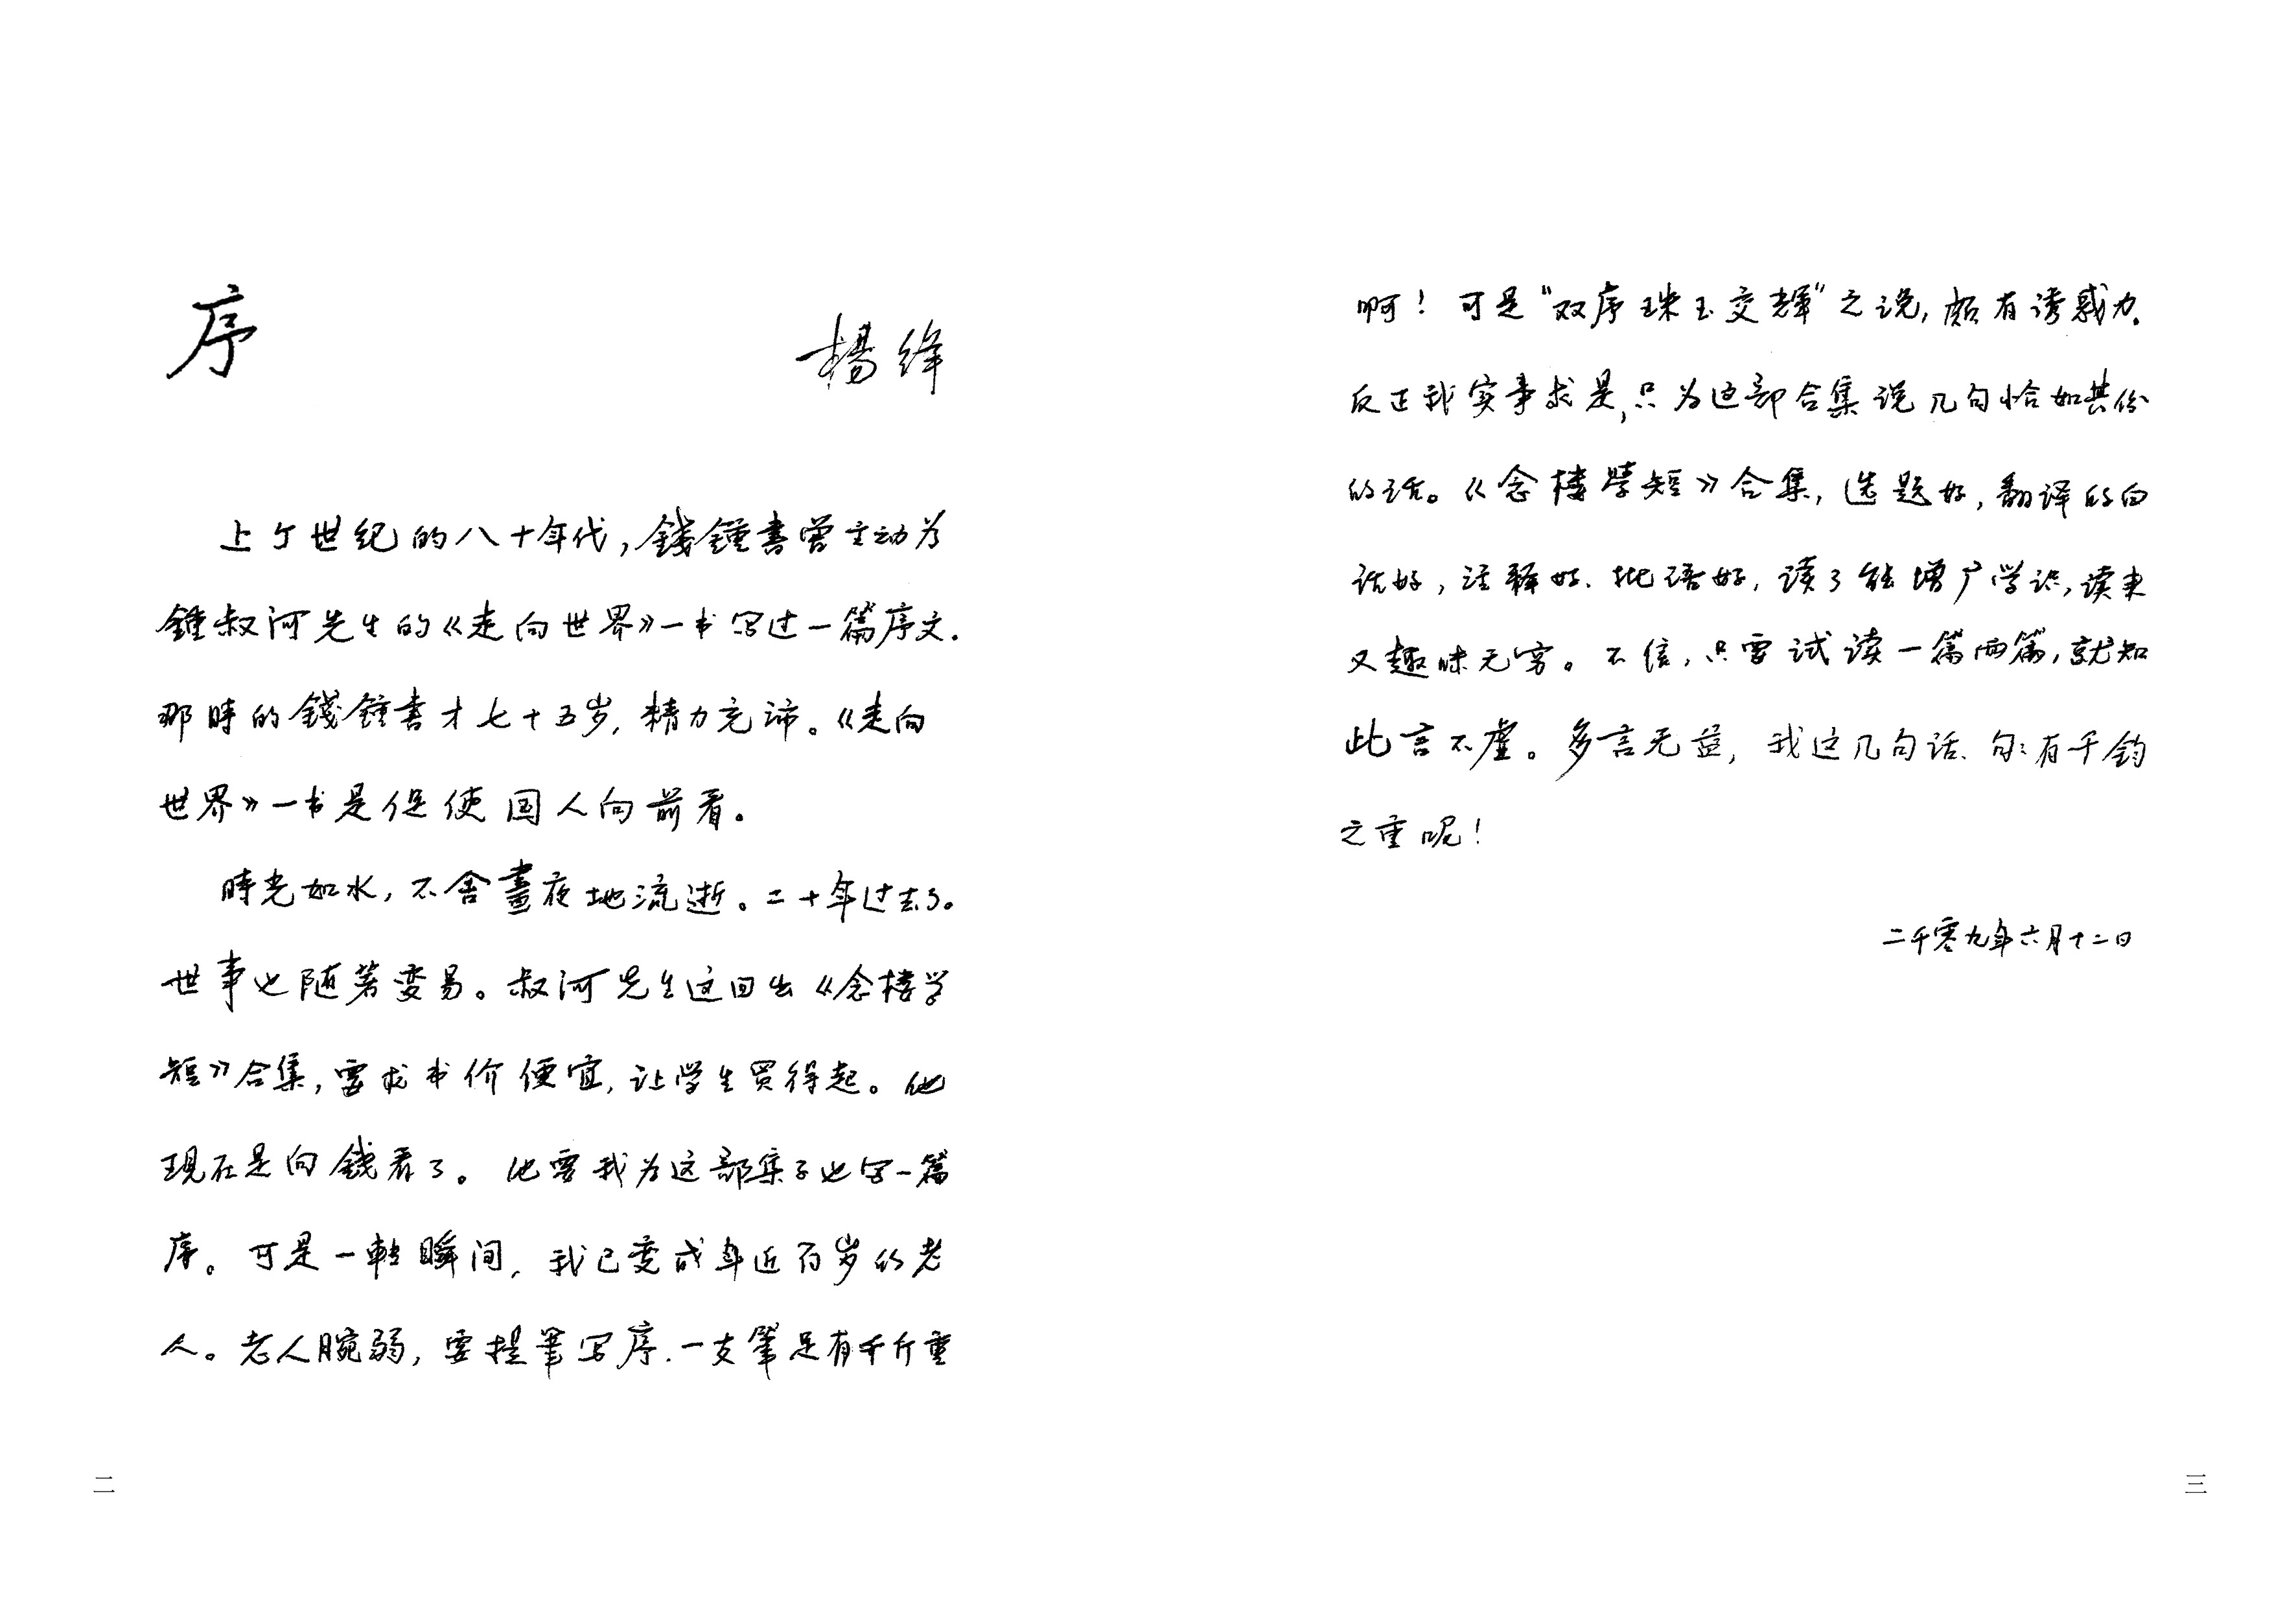 序
楊絳
上个世纪的八十年代，錢鍾書曾主动为
鍾叔河先生的《走向世界》一书写过一篇序文．
那時的錢鍾書才七十五岁，精力充沛。《走向
世界》一书是促使国人向前看。
時光如水，不舍晝夜地流逝。二十年过去了。
世事也随著变易。叔河先生这回出《念楼学
短》合集，要求书价便宜，让学生買得起。他
現在是向錢看了。他要我为这部集子也写一篇
序。可是一轉瞬间，我已变成年近百岁的老
人。老人腕弱，要提筆写序．一支筆足有千斤重
二
啊！可是“双序珠玉交輝”之说，颇有诱惑力．
反正我实事求是，只为这部合集说几句恰如其份
的话。《念楼學短》合集，选题好，翻译的白
话好，注释好．批语好，读了能增广学识，读来
又趣味无穷。不信，只要试读一篇两篇，就知
此言不虚。多言无益，我这几句话、句:有千钧
之重呢！
二千零九年六月十二日
三